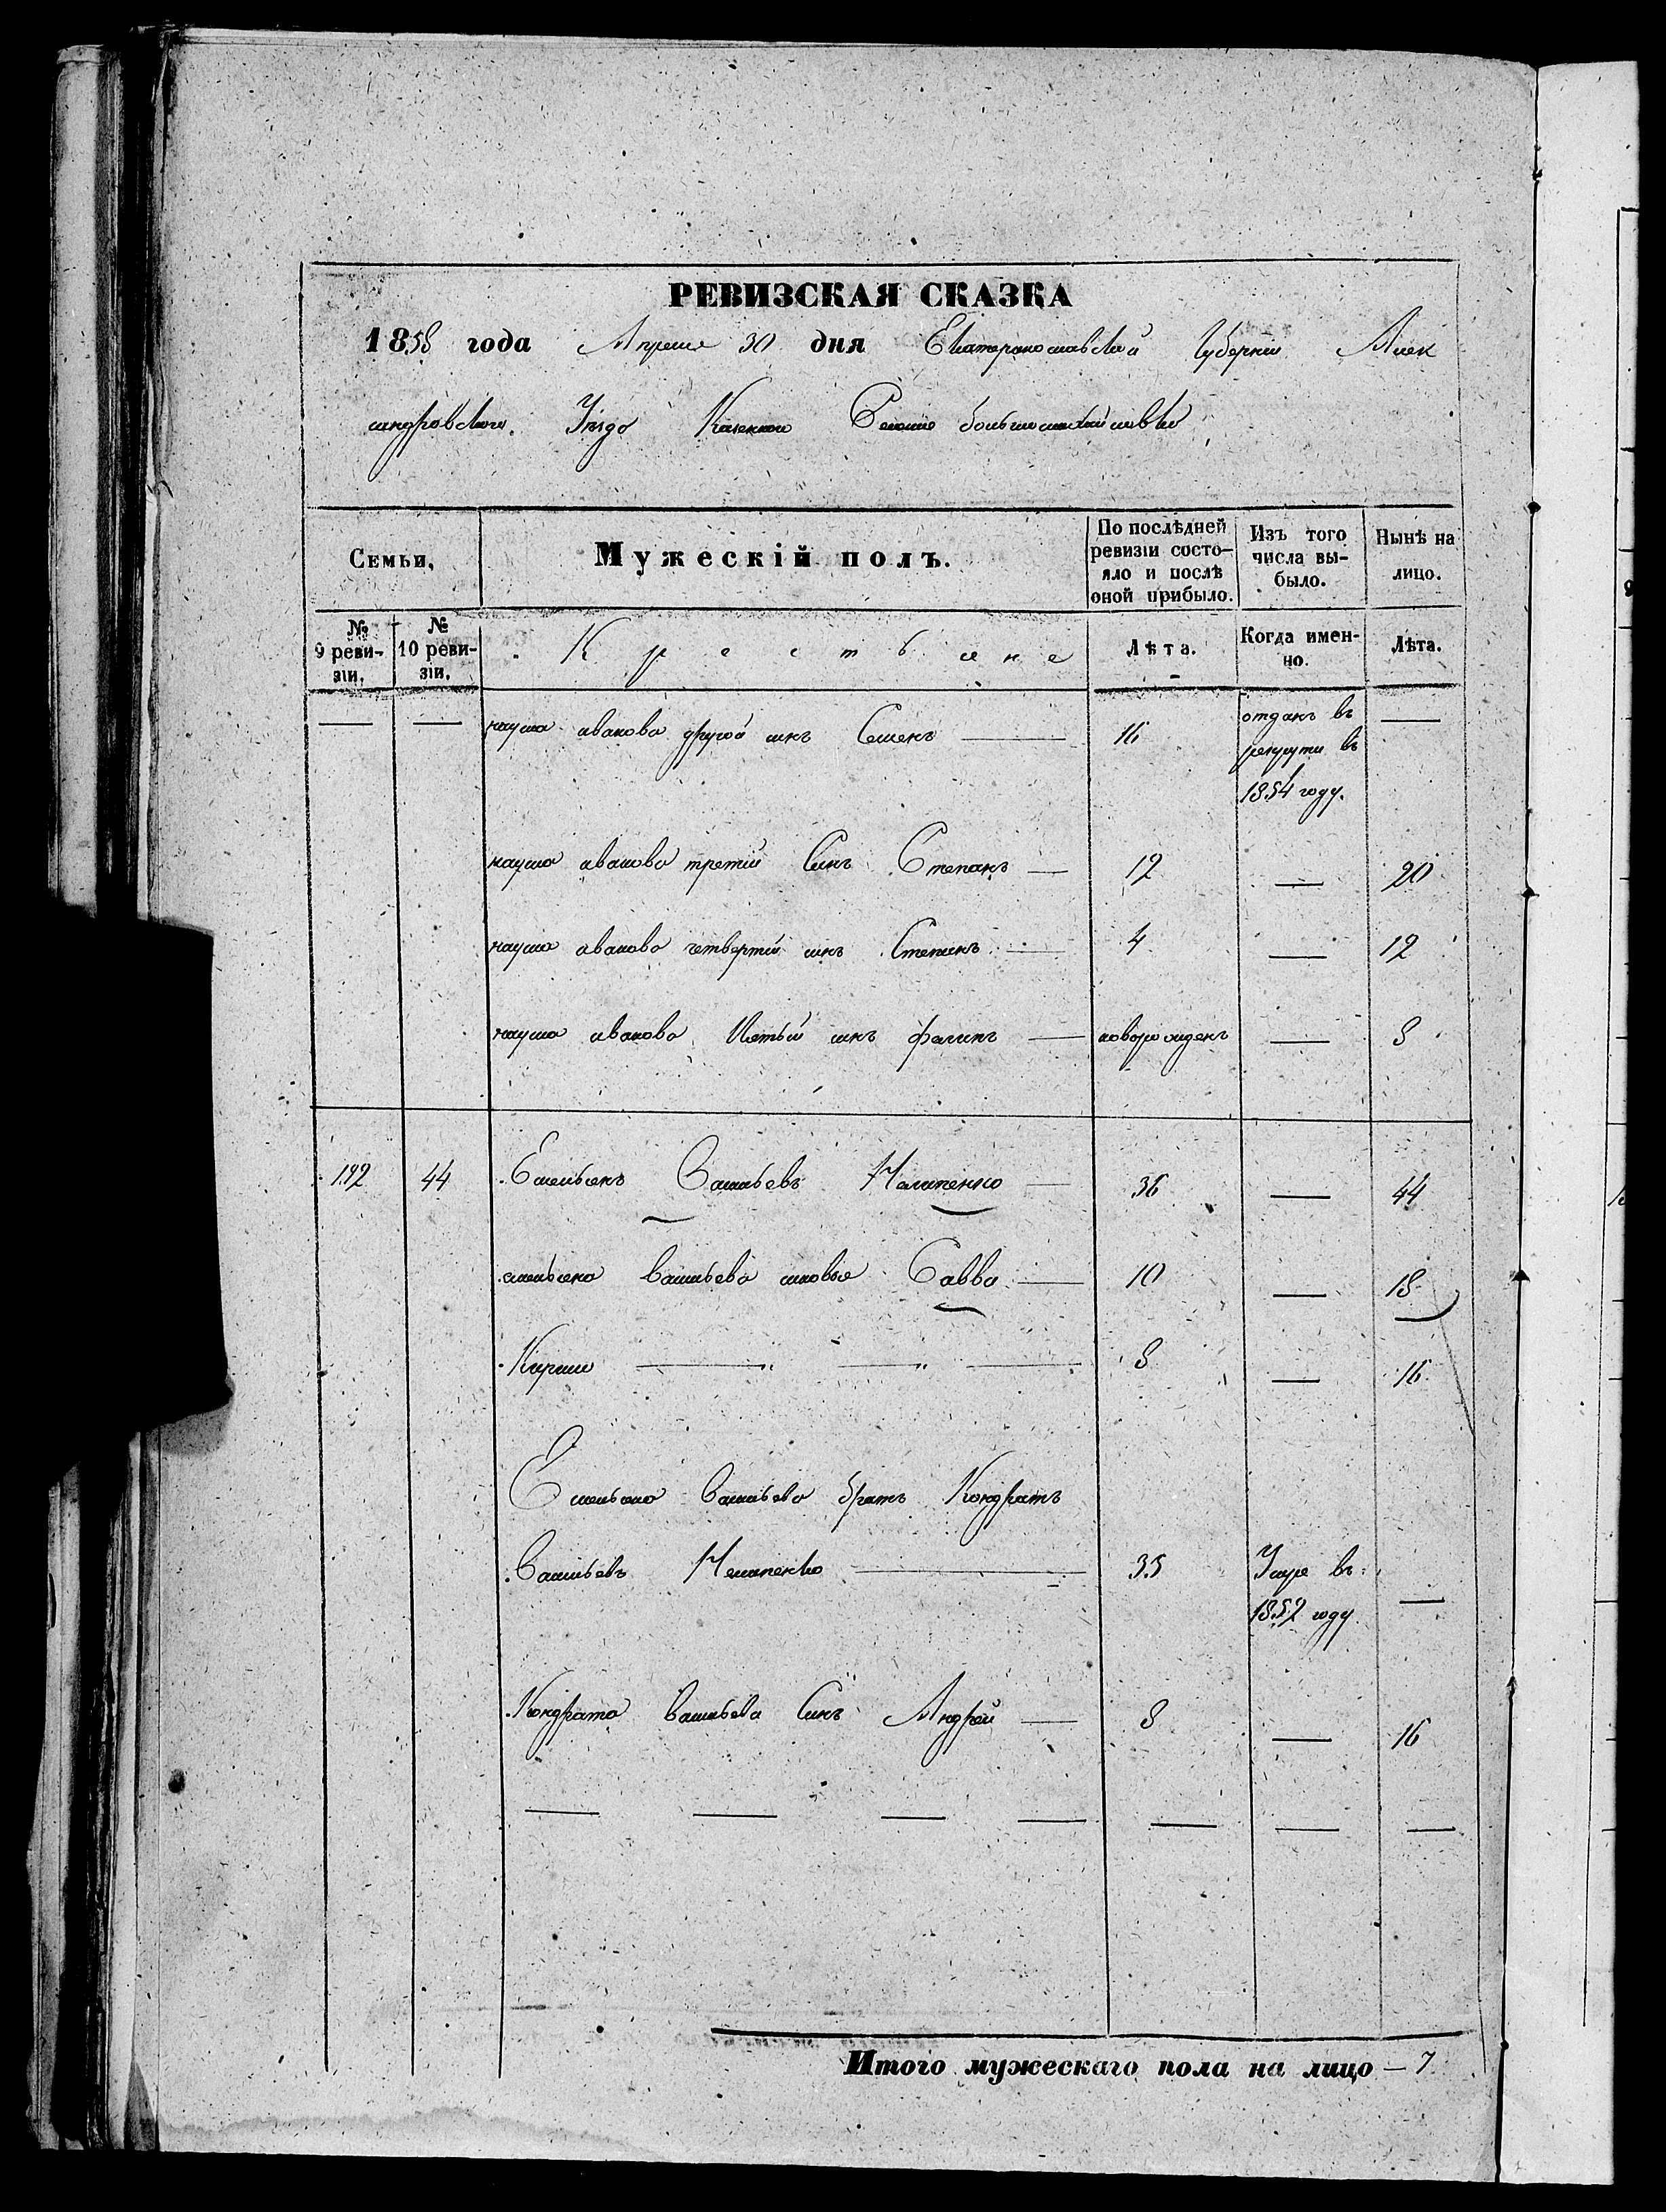 РЕВИЗСКАЯ СКАЗКА
1858 года Апреля 30 дня Екатеринославской Губернии Алек
сандровского Уезда Казенного Селения
Семьи,
Мужескій полъ.
По послѣдней ревизіи состо-
яло и послѣ
оной прибыло.
Изъ того
числа вы-
было.
Нынѣ на
лицо.
№
9 реви-
зіи.
№
10 реви-
зіи.
Крестьяне
Лѣта.
Когда имен-
но.
Лѣта.
— — наума иванова другой синъ Семенъ — 16 отданъ въ —
рекруты въ
1854 году.
наума иванова третий Синъ Степанъ — 12 — 20
наума иванова четвертий синъ Степанъ — 4 — 12
наума иванова Пятый синъ — новорожденъ — 8
192 44 Емельянъ Васильевъ — 36 — 44
емельяна васильева сновья Савва — 10 — 18
Кирило — " — " — 8 — 16
Емельяна Васильева братъ Кондратъ
Васильевъ — 35 Умре въ —
1852 году
Кондрата васильева Синъ Андрей — 8 — 16
— — — — — — —
Итого мужескаго пола на лицо — 7